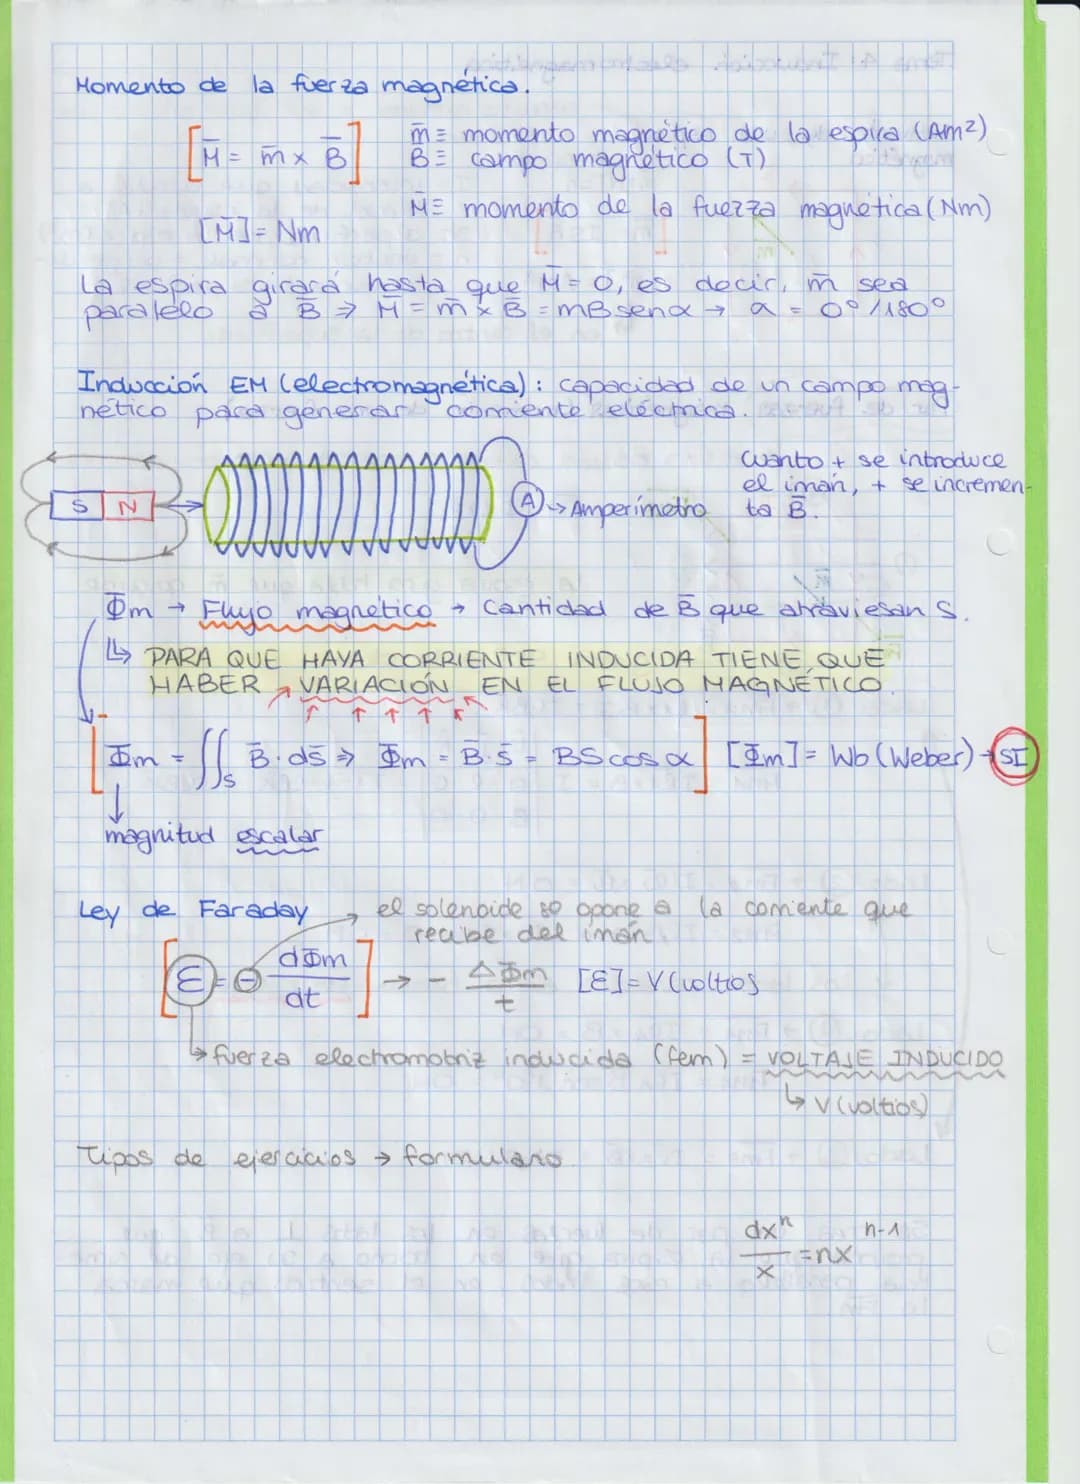 Momento de la fuerza magnética.
[M̄ = m̄ x B̄]
m̄ ≡ momento magnético de la espira (Am²)
B̄ ≡ campo magnético (T)
M̄ ≡ momento de la fuerza magnética (Nm)
[M̄] = Nm
La espira girará hasta que M̄ = 0, es decir, m̄ sea
paralelo a B̄ ⇒ M̄ = m̄ x B̄ = mBsenα → a = 0º/180º
Inducción EM (electromagnética): capacidad de un campo mag-
nético para generar corriente eléctrica.
S N
A → Amperímetro
Cuanto + se introduce
el imán, + se incremen-
ta B̄.
Φm → Flujo magnético → Cantidad de B̄ que atraviesan S.
↳ PARA QUE HAYA CORRIENTE INDUCIDA TIENE QUE
HABER VARIACIÓN EN EL FLUJO MAGNÉTICO.
[Φm = ∬s B̄ · ds̄ ⇒ Φm = B̄ · s̄ = BS cos α] [Φm] = Wb (Weber) → SI
magnitud escalar
Ley de Faraday
el solenoide se opone a la corriente que
recibe del imán
[ε = - dΦm/dt] → - ΔΦm/t [ε] = V (voltios
↳ fuerza electromotriz inducida (fem) = VOLTAJE INDUCIDO
↳ V (voltios)
Tipos de ejercicios → formulario
dxⁿ/x = nx ⁿ⁻¹